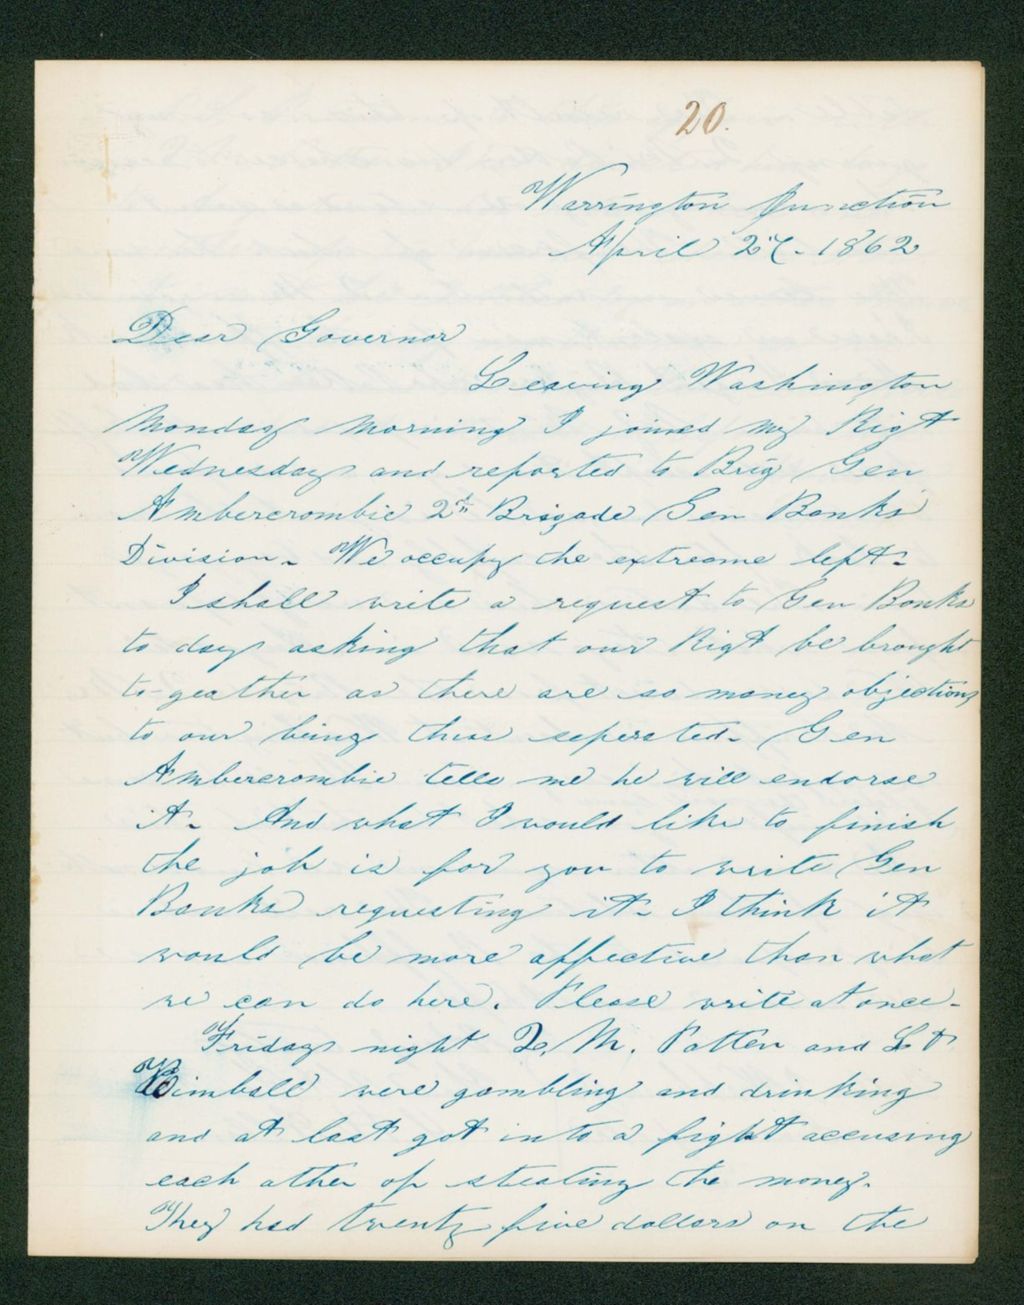 20.
Warrington Junction
April 27. 1862
Dear Governor
Leaving Washington
Monday morning I joined my Rigt
Wednesday and reported to Brig Gen
Ambercrombie 2nd Brigade Gen Banks
Division. We occupy the extreame left.
I shall write a request to Gen Banks
to day asking that our Rigt be brought
to-geather as there are so money objections
to our being thus seperated. Gen
Ambercrombie tells me he will endorse
it. And what I would like to finish
the job is for you to write Gen
Banks requesting it. I think it
would be more affective than what
we can do here. Please write at once.
Friday night Q. M. Patten and Lt
Kimball were gambling and drinking
and at last got into a fight accusing
each other of stealing the money.
They had twenty five dollars on the